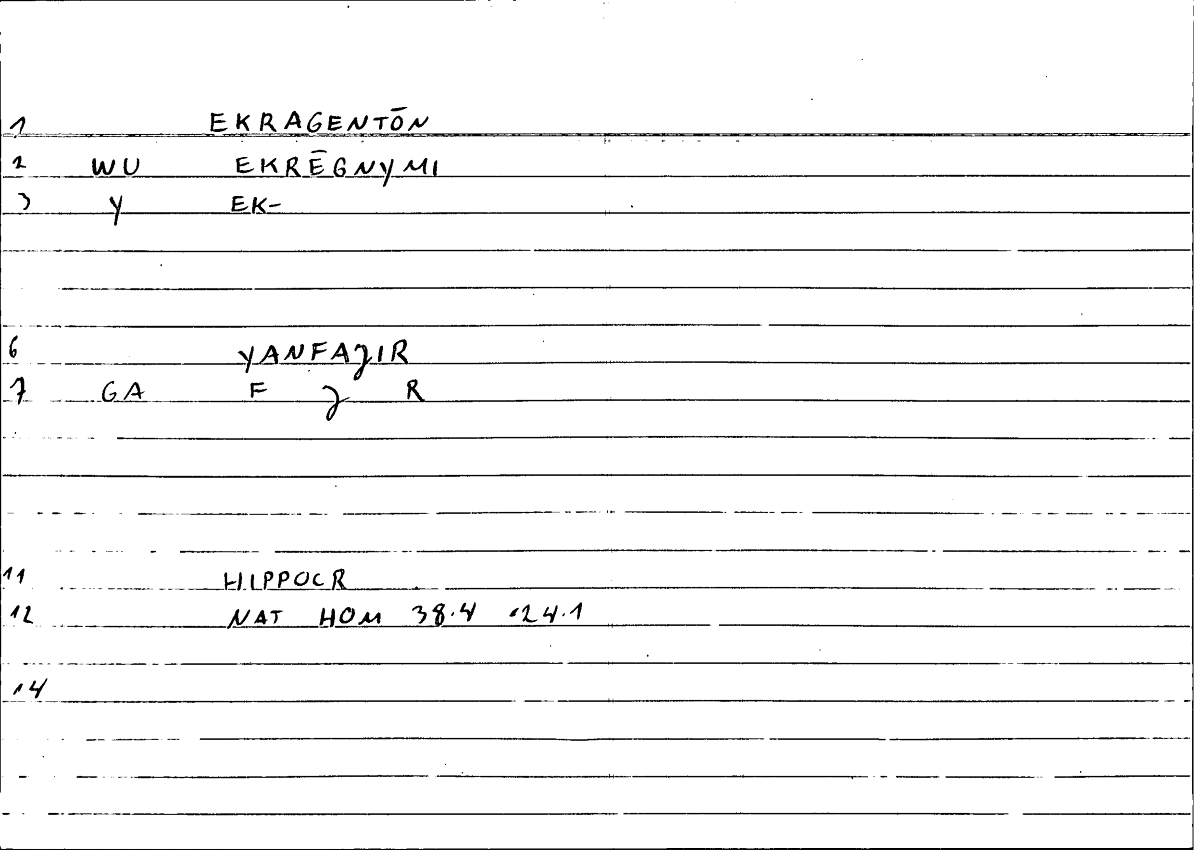 1 EKRAGENTŌN
2 WU EKRĒGNYMI
3 Y EK-
6 YANFAȝIR
7 GA F ȝ R
11 HIPPOCR
12 NAT HOM 38.4 24.1
14